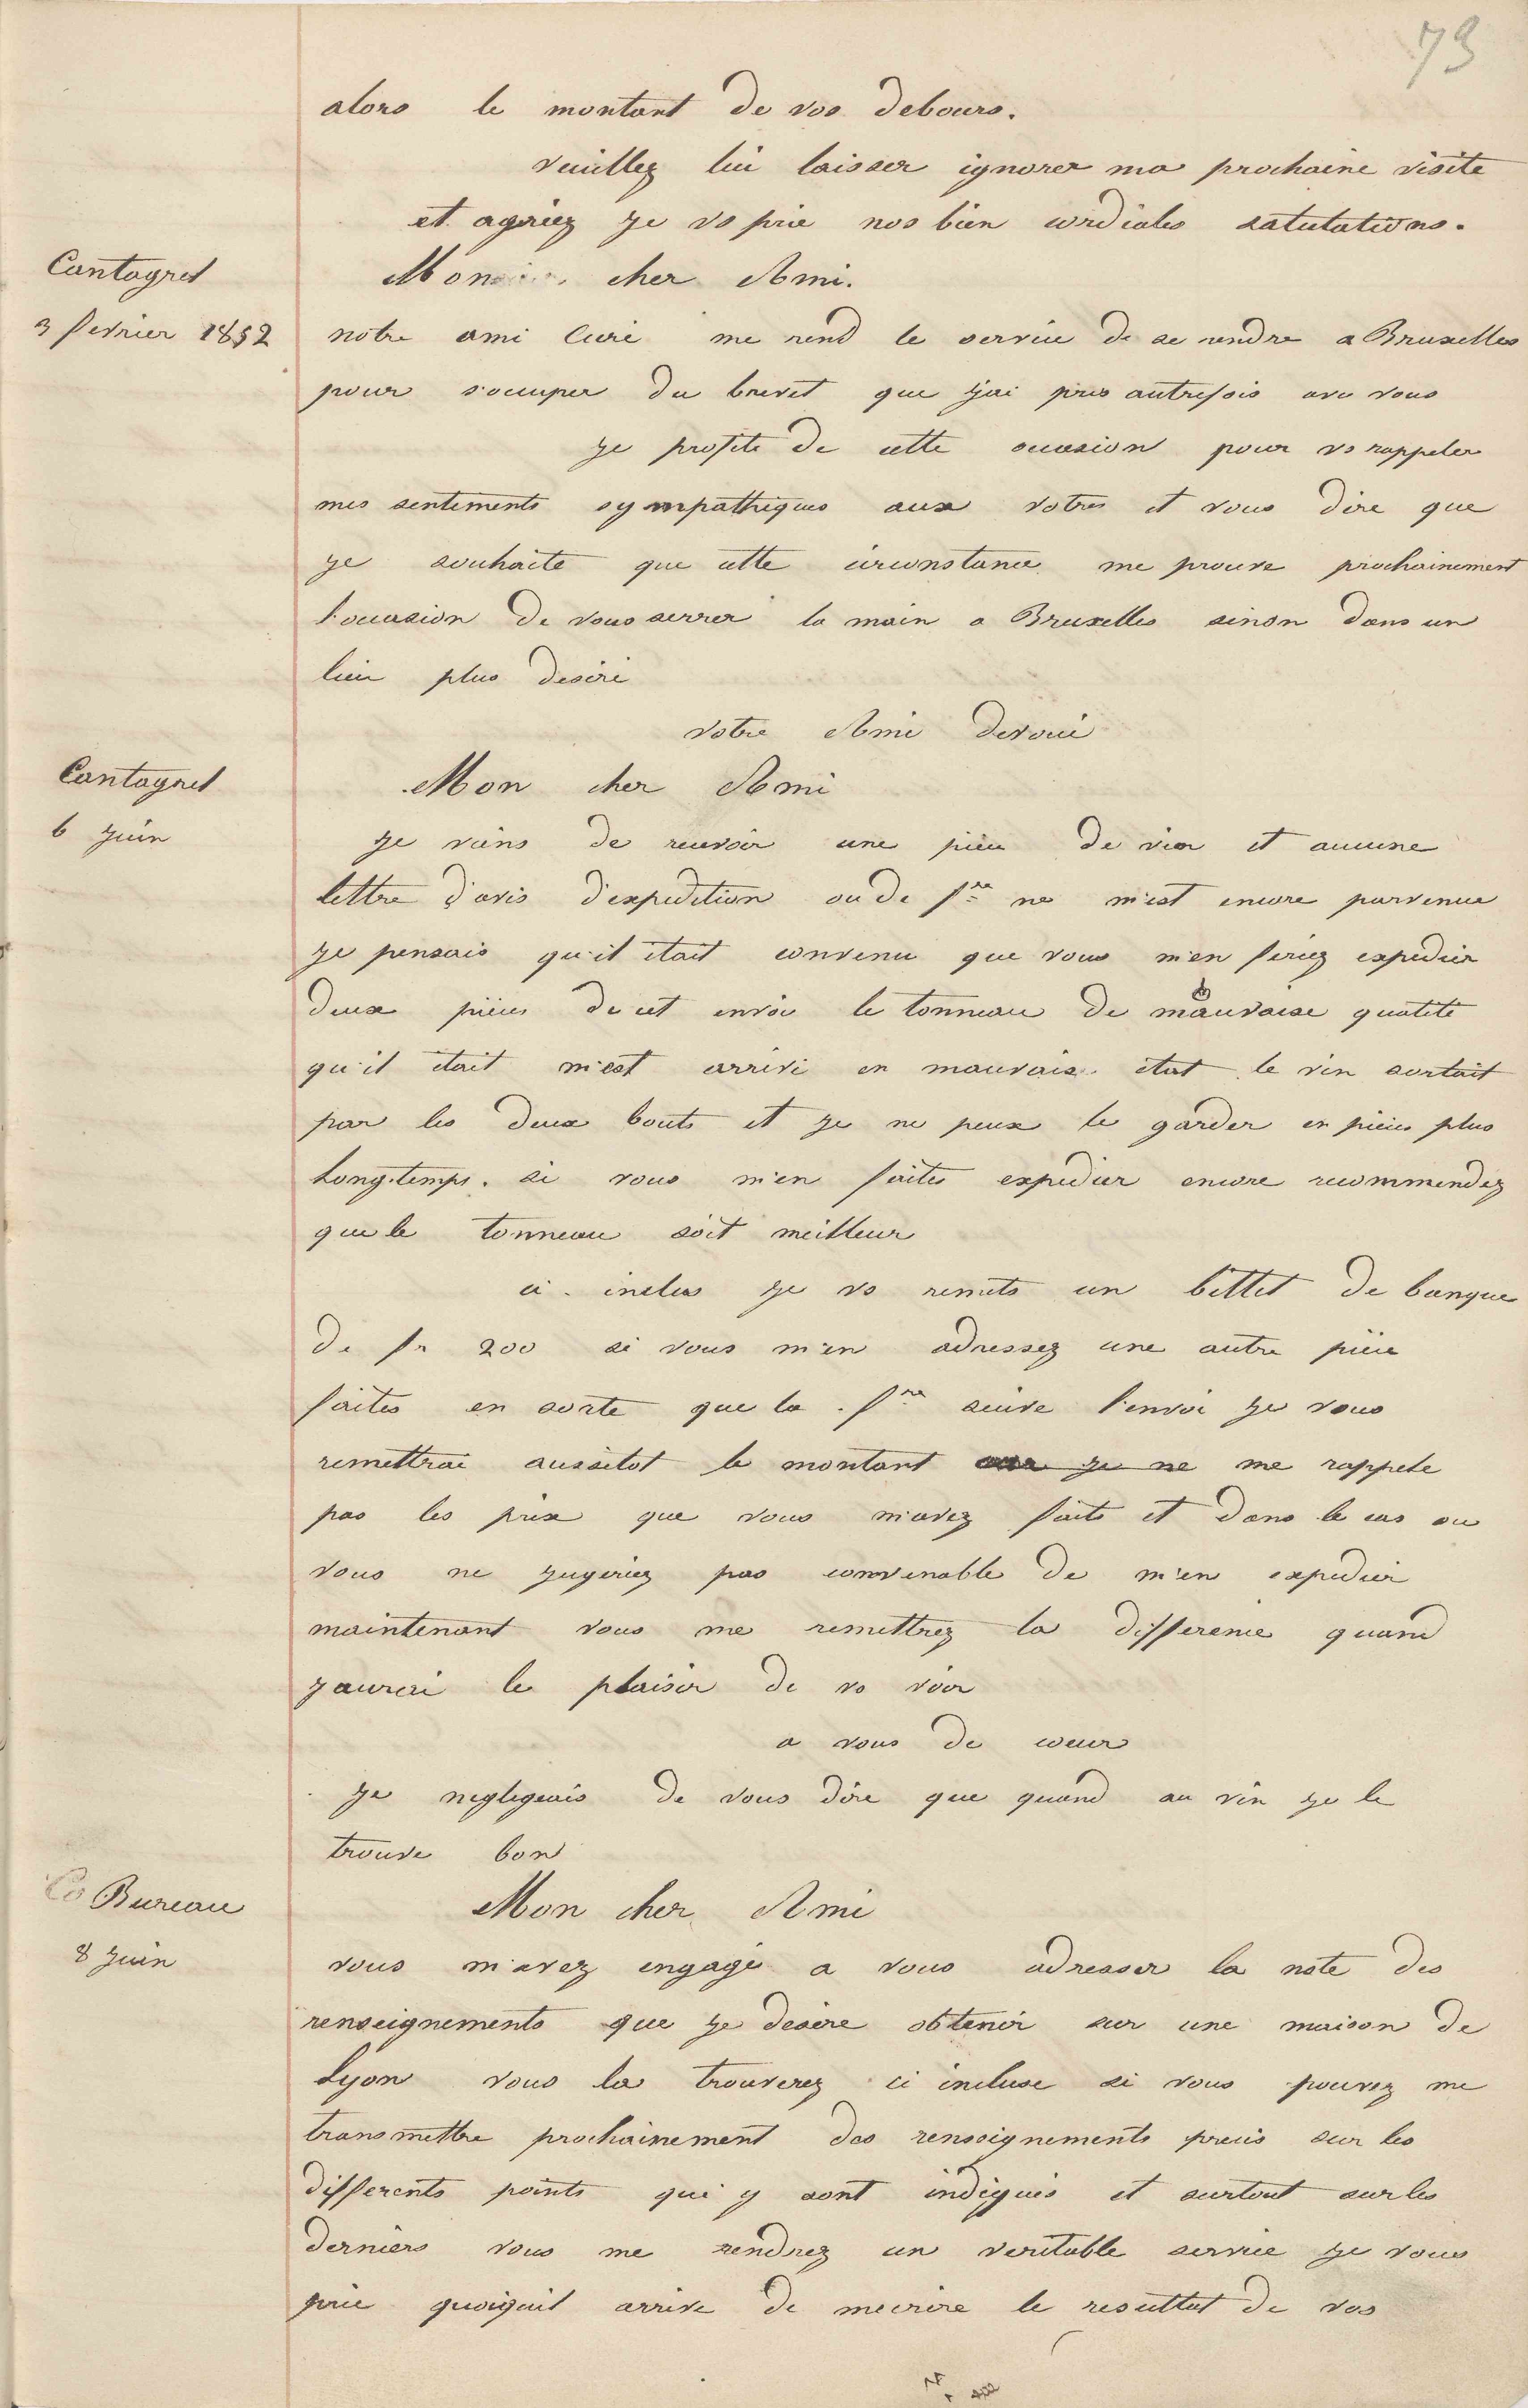 73
alors le montant de vos debours.
veuillez lui laisser ignorer ma prochaine visite
et agréez je vs prie nos bien cordiales salutations.
Cantagrel
3 fevrier 1852
Mon cher Ami.
notre ami Curé me rend le service de se rendre a Bruxelles
pour s'occuper du brevet que j'ai pris autrefois avec vous
je profite de cette occasion pour vs rappeler
mes sentiments sympathiques aux votres et vous dire que
je souhaite que cette circonstance me prouve prochainement
l'occasion de vous serrer la main a Bruxelles sinon dans un
lieu plus desiré
votre Ami devoué
Cantagrel
6 juin
Mon cher Ami
je viens de recevoir une pièce de vin et aucune
lettre d'avis d'expedition ou de fre ne m'est encore parvenue
je pensais qu'il était convenu que vous m'en feriez expedier
deux pièces de cet envoi le tonneau de mauvaise qualité
qu'il était m'est arrivé en mauvais état le vin sortait
par les deux bouts et je ne peux le garder en pièces plus
Longtemps. si vous m'en faites expedier encore recommendez
que le tonneau soit meilleur
ci-inclus je vs remets un billet de banque
de fr 200 si vous m'en adressez une autre pièce
faites en sorte que la fre suive l'envoi je vous
remettrai aussitot le montant je ne me rappele
pas les prix que vous m'avez faits et dans le cas ou
vous ne jugeriez pas convenable de m'en expedier
maintenant vous me remettrez la difference quand
j'aurai le plaisir de vs voir
a vous de coeur
je negligeais de vous dire que quand au vin je le
trouve bon
Co Bureau
8 juin
Mon cher Ami
vous m'avez engagé a vous adresser la note des
renseignements que je desire obtenir sur une maison de
Lyon vous la trouverez ci incluse si vous pouvez me
transmettre prochainement des renseignements precis sur les
differents points qui y sont indiqués et surtout sur les
derniers vous me rendrez un veritable service je vous
prie quoiquil arrive de mecrire le resultat de vos